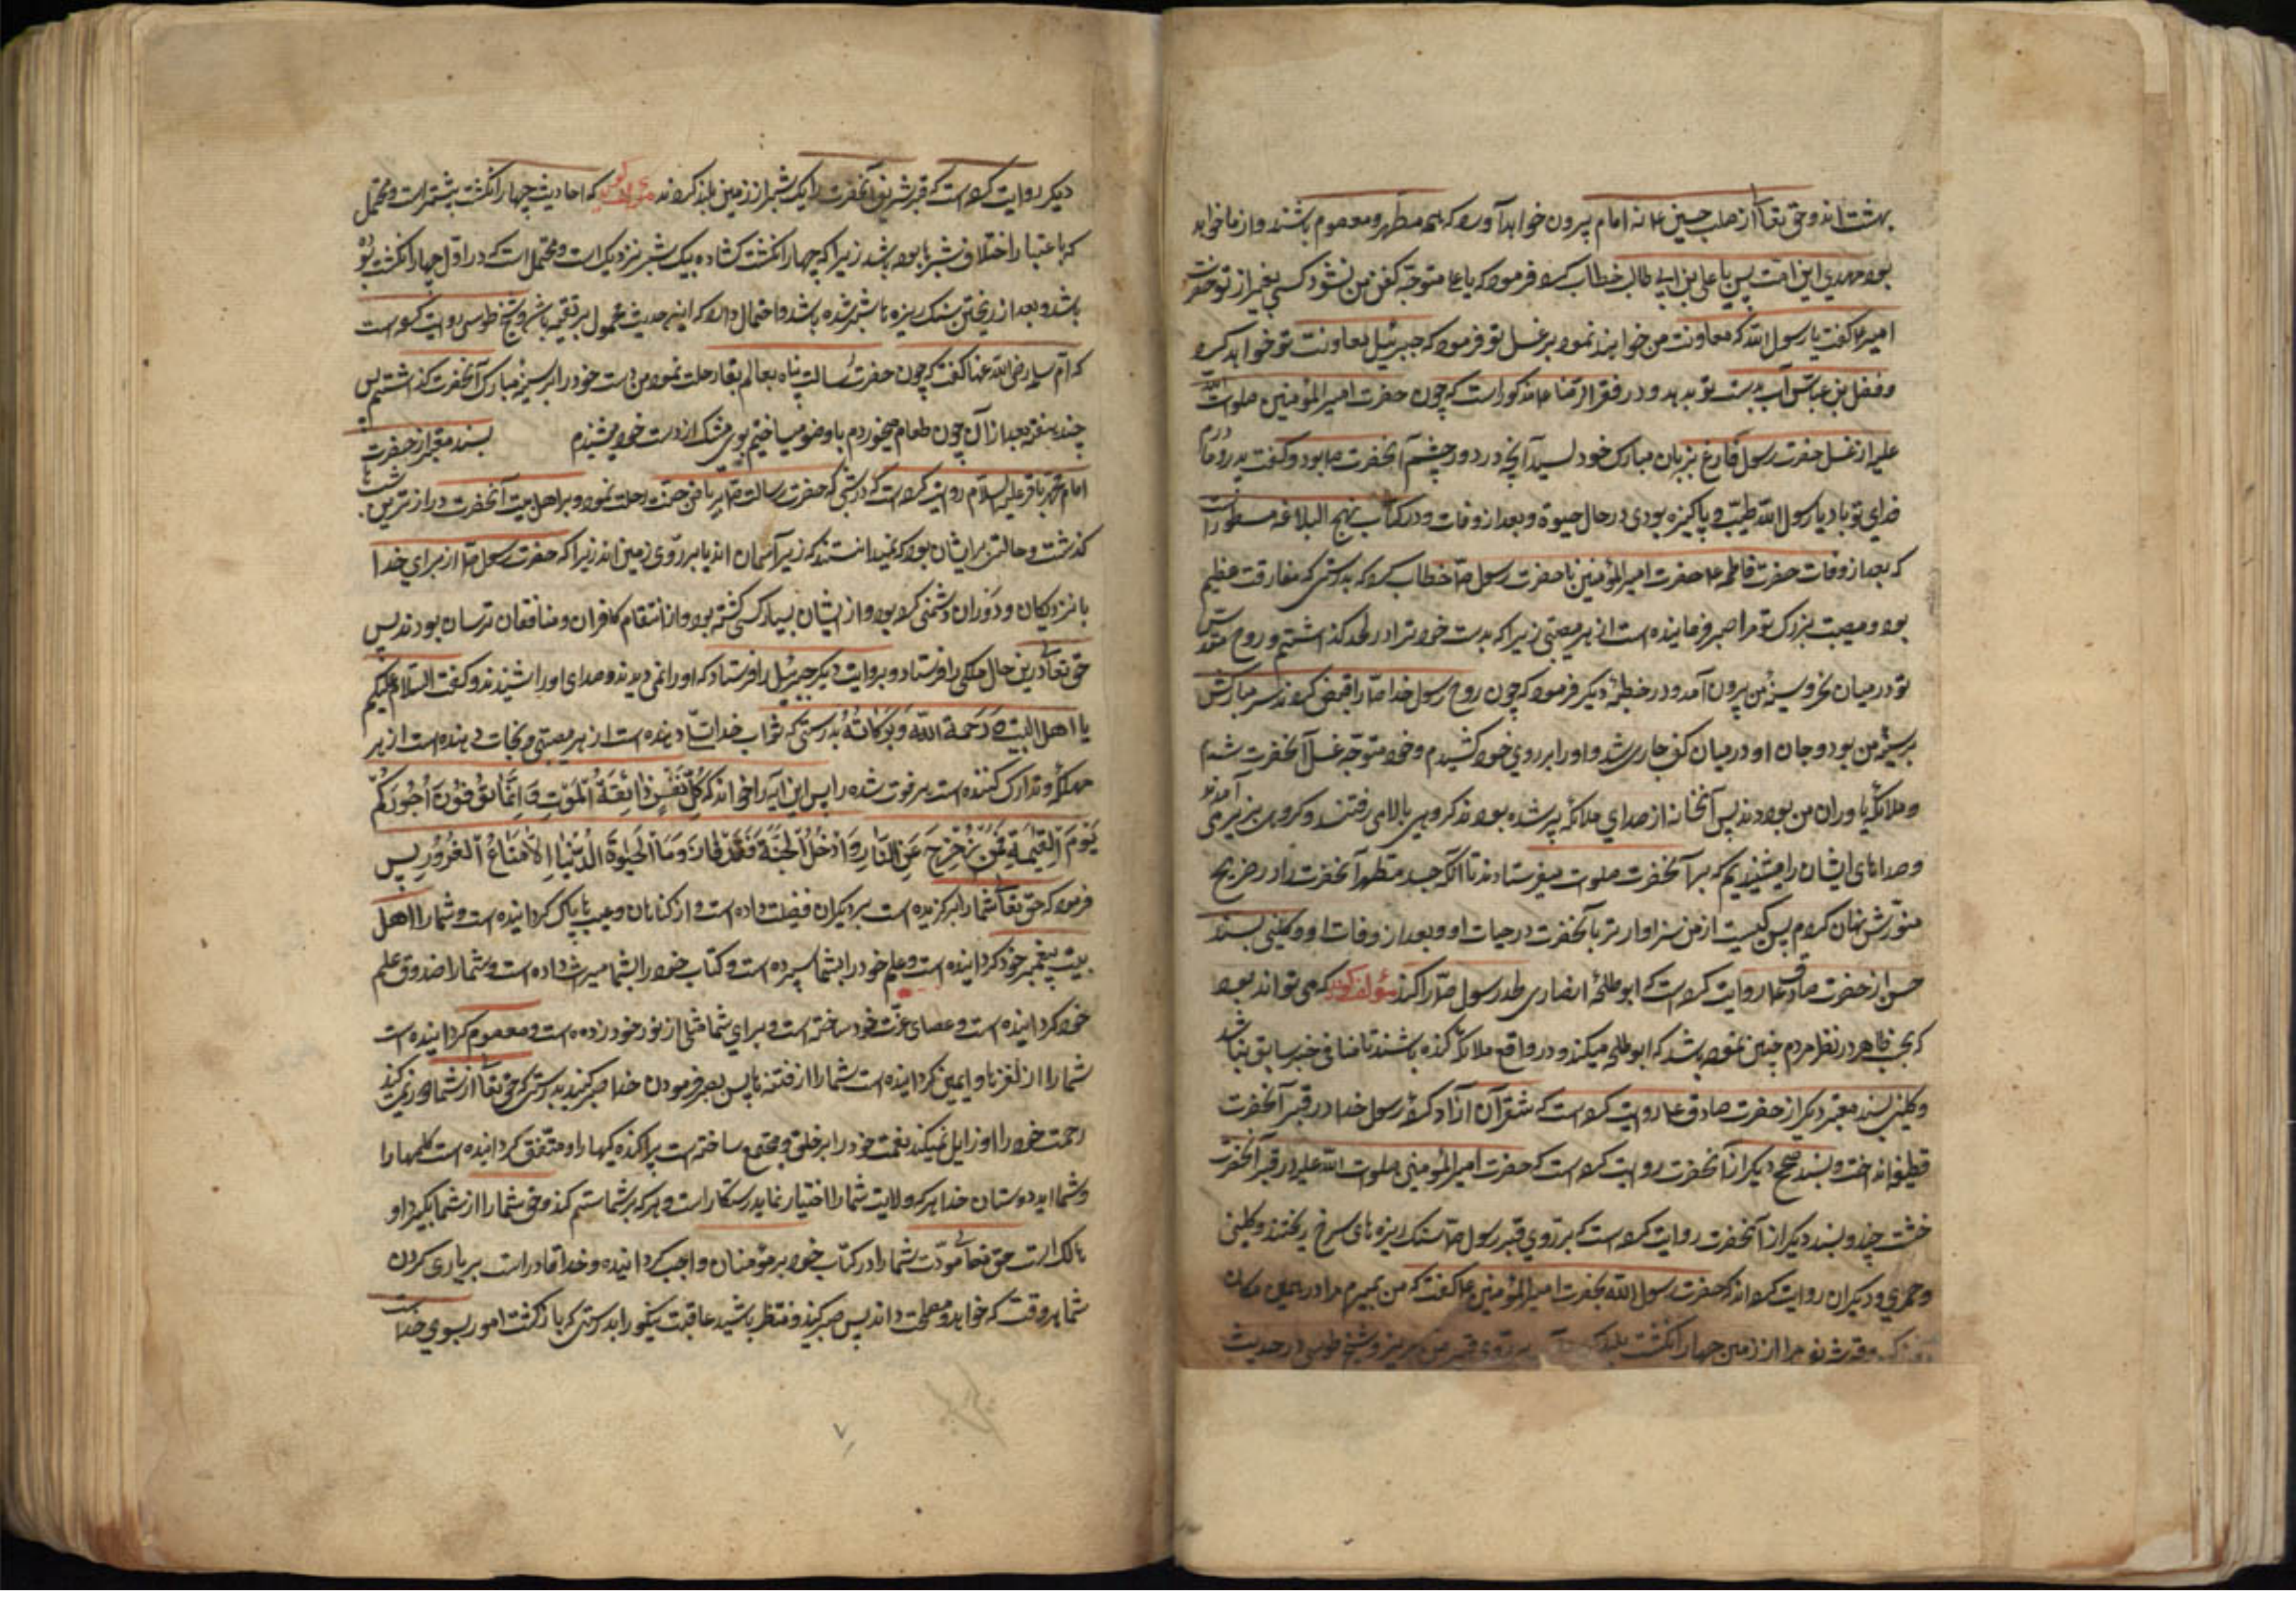 بهشت اند و حق تعا از صلب حسین ع نه امام بیرون خواهد آورد که همه مطهر و معصوم باشند و از ما خواهد
بود مهدی این امت پس با علی بن ابی طالب خطاب کرد فرمود که یا علی متوجه کفن من نشود کسی بغیر از تو حضرت
امیر ع گفت یا رسول الله که معاونت من خواهند نمود بر غسل تو فرمود که جبرئیل معاونت تو خواهد کرد
و فضل بن عباس آب بدست تو بدهد و در فقه الرضا ع مذکور است که چون حضرت امیر المؤمنین صلوات الله
علیه از غسل حضرت رسول فارغ بزبان مبارک خود لیسید آنچه در دور چشم آنحضرت ص بود و گفت پدر و مادرم
فدای تو باد یا رسول الله طیب و پاکیزه بودی در حال حیوة و بعد از وفات و در کتاب نهج البلاغه مسطور است
که بعد از وفات حضرت فاطمه ع حضرت امیر المؤمنین با حضرت رسول ص خطاب کرد که بدرستی که مفارقت عظیم
بود و مصیبت بزرک تو مرا صبر فرماینده است از هر مصیبتی زیرا که بدست خود ترا در لحد گذاشتم و روح مقدس
تو در میان نحر و سینهٔ من بیرون آمد و در خطبهٔ دیکر فرمود که چون روح رسول خدا ص را قبض کردند سر مبارکش
بر سینهٔ من بود و جان او در میان کف جاری شد و او را بر روی خود کشیدم و خود متوجه غسل آنحضرت شدم
و ملائکه یاوران من بودند پس آنخانه از صدای ملائکه پر شده بود کروهی بالا می رفتند و کروهی بزیر می آمدند
و صداهای ایشان را میشنیدیم که بر آنحضرت صلوات میفرستادند تا آنکه جسد مطهر آنحضرت را در ضریح
منورش نهان کردم پس کیست از من سزاوارتر بآنحضرت در حیات او و بعد از وفات او و کلینی بسند
حسن از حضرت صادق ع روایت کرده است که ابو طلحهٔ انصاری لحد رسول ص را کند مؤلف کوید که می تواند بود
که بحسب ظاهر در نظر مردم چنین نموده باشد که ابو طلحه میکند و در واقع ملائکه کنده باشند تا منافی خبر سابق نباشد
و کلینی بسند معتبر دیکر از حضرت صادق ع روایت کرده است که شقران آزاد کردهٔ رسول خدا در قبر آنحضرت
قطیفه انداخت و بسند صحیح دیکر از آنحضرت روایت کرده است که حضرت امیر المؤمنین صلوات الله علیه در قبر آنحضرت
خشت چید و بسند دیکر از آنحضرت روایت کرده است که بر روی قبر رسول ص سنک ریزه های سرخ ریختند و کلینی
و حمیری و دیکران روایت کرده اند که حضرت رسول الله بحضرت امیر المؤمنین ع گفت که من بمیرم مرا در همین مکان
مرا از زمین چهار انکشت بلند بر روی قبر من بریز و شیخ طوسی در حدیث
دیکر روایت کرده است که قبر شریف آنحضرت را یک شبر از زمین بلند کردند مؤلف کوید که احادیث چهار انکشت بیشتر است و محتمل
که باعتبار اختلاف شبرها بوده باشد زیرا که چهار انکشت کشاده بیک شبر نزدیک است و محتمل است که در اول چهار انکشت بوده
باشد و بعد از ریختن سنک ریزه تا شبر شده باشد و احتمال دارد که این حدیث محمول بر تقیه باشد و شیخ طوسی روایت کرده است
که ام سلمه رضی الله عنها گفت که چون حضرت رسالت پناه بعالم بقا رحلت نمود من دست خود را بر سینه مبارک آنحضرت گذاشتم پس
چند هفته بعد از آن چون طعام میخوردم یا وضو میساختم بوی مشک از دست خود میشنیدم بسند معتبر از حضرت
امام محمد باقر علیه السلام روایت کرده است که در شبی که حضرت رسالت ص بریاض جنت رحلت نمود بر اهل بیت آنحضرت درازترین شبها
گذشت و حالتی بر ایشان بود که نمیدانستند که زیر آسمان اند یا بر روی زمین اند زیرا که حضرت رسول ص از برای خدا
با نزدیکان و دوران دشمنی کرده بود و از ایشان بسیار کسی کشته بود و از انتقام کافران و منافقان ترسان بودند پس
حق تعالی در این حال ملکی را فرستاد و بروایت دیکر جبرئیل را فرستاد که او را نمی دیدند و صدای او را شنیدند و گفت السلام علیکم
یا اهل البیت و رحمة الله و بَرَکاتُهُ بدرستی که ثواب خدا تسلی دهنده است از هر مصیبتی و نجات دهنده است از هر
مهلکهٔ و تدارک کننده است هر فوت شده را پس این آیه را خواند که کُلُّ نَفْسٍ ذائِقَةُ المَوْتِ وَ اِنَّما تُوَفَّوْنَ اُجُورَکُمْ
یَوْمَ القِیٰمَةِ فَمَنْ زُحْزِحَ عَنِ النّارِ وَ اُدْخِلَ الجَنَّةَ فَقَدْ فازَ وَ مَا الحَیوةُ الدُّنْیا اِلّا مَتاعُ الغُرُورِ پس
فرمود که حق تعالی شما را برکزیده است بر دیکران فضیلت داده است و از کناهان و عیب ها پاک کردانیده است و شما را اهل
بیت پیغمبر خود کردانیده است و علم خود را بشما سپرده است و کتاب خود را بشما میراث داده است و شما را صندوق علم
خود کردانیده است و عصای عزت خود ساخته است و برای شما مثلی از نور خود زده است و معصوم کردانیده است
شما را از لغزش ها و ایمن کردانیده است شما را از فتنه ها پس بصبر فرمودن خدا صبر کنید بدرستی که حق تعا از شما دور نمی کند
رحمت خود را و زایل نمیکند نعمت خود را بر خلق و مجتمع ساخته است پراکنده کیها را و متفق کردانیده است کلمها را
و شمااید دوستان خدا هر که ولایت شما را اختیار نماید رستکار است و هر که بر شما ستم کند و حق شما را از شما بگیرد او
هالک است حق تعالی مودت شما را در کتاب خود بر مؤمنان واجب کردانیده و خدا قادر است بر یاری کردن
شما هر وقت که خواهد و مصلحت داند پس صبر کنید و منتظر باشید عاقبت نیکو را بدرستی که بازگشت امور بسوی خداست